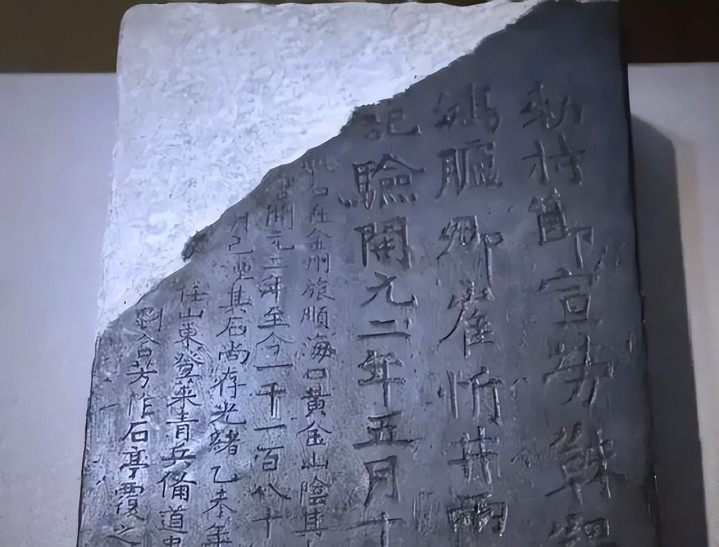 勅持節宣勞靺羯
鴻臚卿崔忻井兩
記驗開元二年五月十
在金州旅順海口黃金山陰其
開元二年至今一千一百八十
井已湮其石尚存光緒乙未
任山東登萊青兵備道貴
劉含芳作石亭覆之